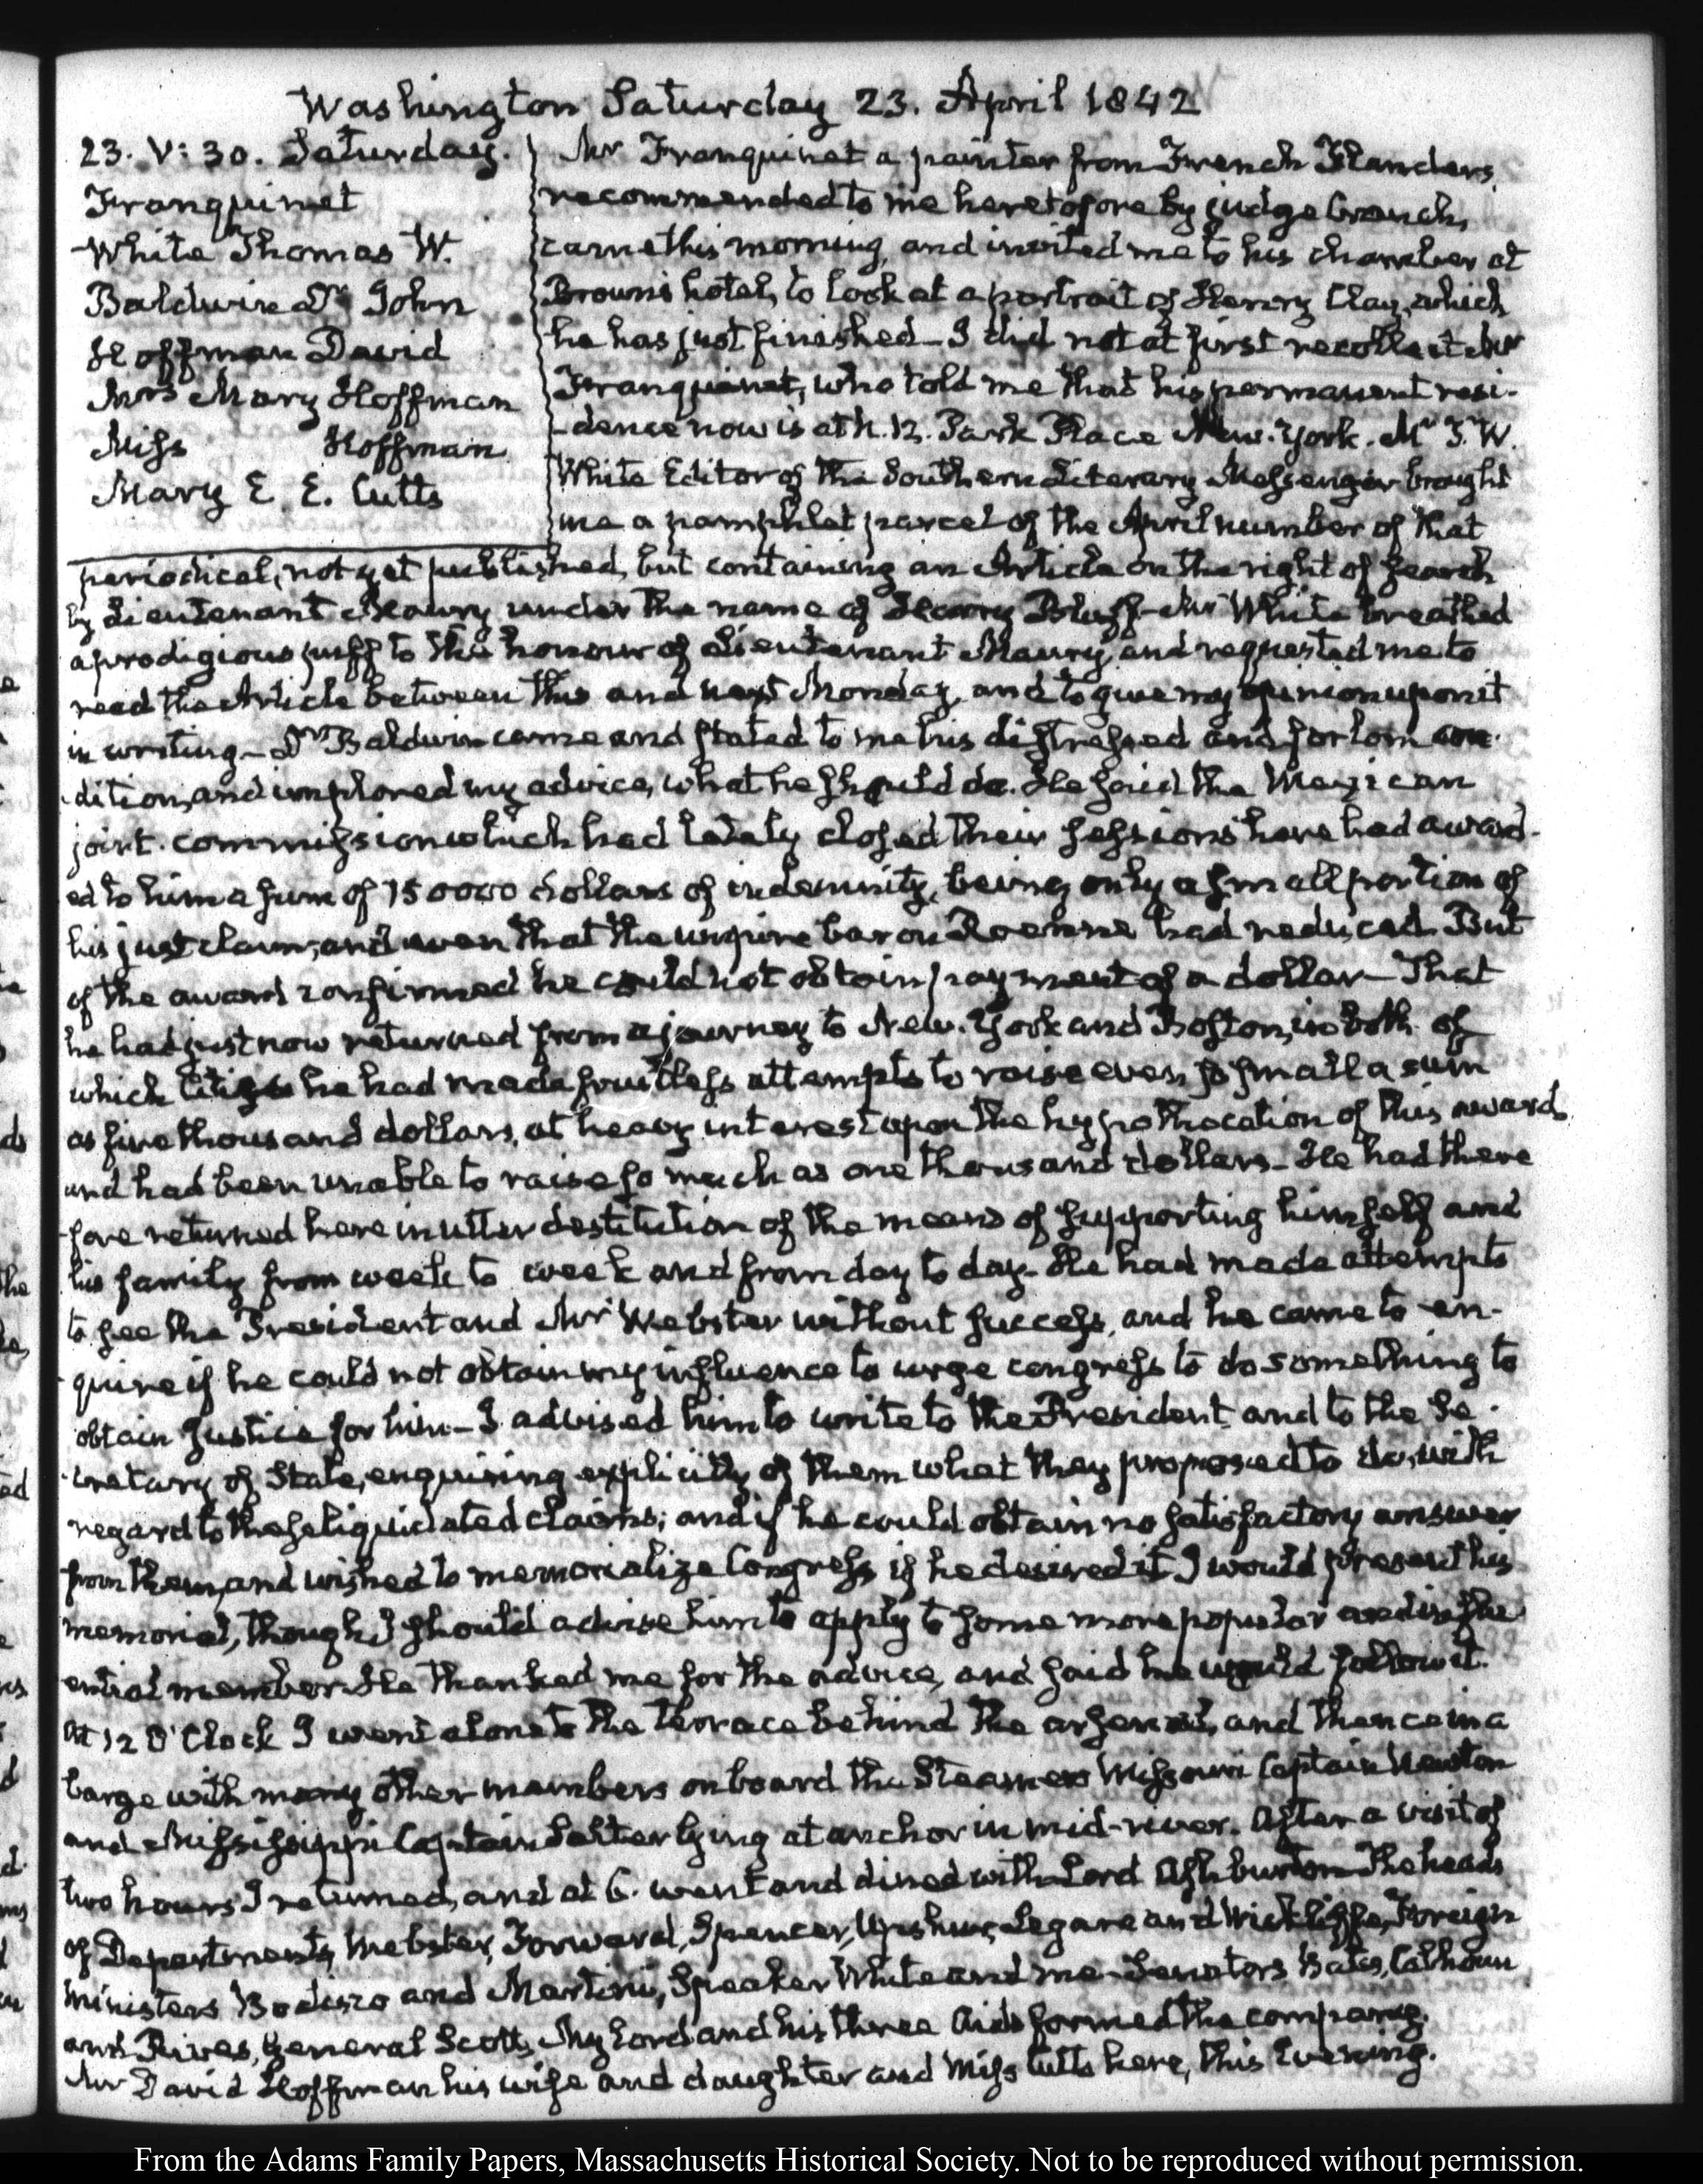 Washington Saturday 23. April 1842
23. V: 30. Saturday.
Franquinet
White Thomas W.
Baldwin Dr. John
Hoffman David
Mrs Mary Hoffman
Miss Hoffman
Mary E. E. Cutts
Mr Franquinet a painter from French Flanders,
recommended to me heretofore by judge Cranch,
came this morning, and invited me to his chamber at
Brown's hotel, to look at a portrait of Henry Clay, which
he has just finished— I did not at first recollect Mr
Franquinet, who told me that his permanent resi-
-dence now is at N. 12. Park Place New-York. Mr T. W.
White Editor of the Southern Literary Messenger brought
me a pamphlet parcel of the April number of that
periodical, not yet published, but containing an Article on the right of search
by Lieutenant Maury under the name of Harry Bluff— Mr White breathed
a prodigious puff to the honour of Lieutenant Maury, and requested me to
read the Article between this and next Monday, and to give my opinion upon it
in writing— Dr Baldwin came and stated to me his distressed and forlorn con-
-dition, and implored my advice, what he should do. He said the Mexican
joint-commission which had lately closed their sessions here had award-
ed to him a sum of 150000 dollars of indemnity, being only a small portion of
his just claim, and even that the umpire baron Roenne had reduced. But
of the award confirmed he could not obtain payment of a dollar— That
he had just now returned from a journey to New-York and Boston, in both of
which Cities he had made fruitless attempts to raise even so small a sum
as five thousand dollars, at heavy interest upon the hypothecation of this award,
and had been unable to raise so much as one thousand dollars— He had there
-fore returned here in utter destitution of the means of supporting himself and
his family from week to week and from day to day— He had made attempts
to see the President and Mr Webster without success, and he came to en-
-quire if he could not obtain my influence to urge congress to do something to
obtain justice for him— I advised him to write to the President and to the Se-
-cretary of State, enquiring explicitly of them what they proposed to do, with
regard to these liquidated claims; and if he could obtain no satisfactory answer
from them, and wished to memorialize Congress, if he desired it I would present his
memorial, though I should advise him to apply to some more popular and influ
ential member. He thanked me for the advice, and said he would follow it.
At 12 O'Clock I went alone to the terrace behind the arsenal, and thence in a
barge with many other members on board the Steamers Missouri Captain Newton
and Mississippi Captain Salter lying at anchor in mid-river. After a visit of
two hours I returned, and at 6. went and dined with Lord Ashburton— The heads
of Departments, Webster, Forward, Spencer, Upshur, Legare and Wickliffe, Foreign
Ministers Bodisco and Martini, Speaker White and me— Senators Bates, Calhoun
and Rives, General Scott, My Lord and his three Aids formed the company.
Mr David Hoffman his wife and daughter and Miss Cutts here, this Evening.
From the Adams Family Papers, Massachusetts Historical Society. Not to be reproduced without permission.